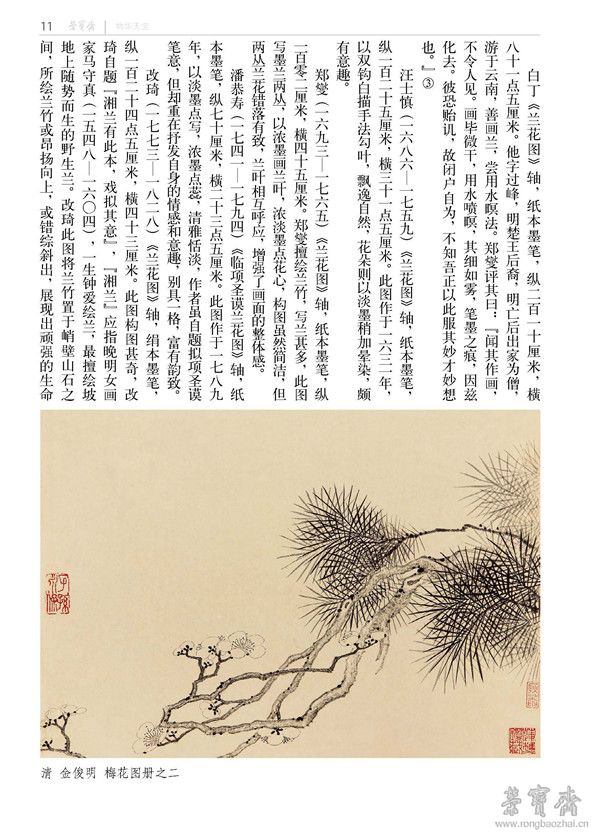 11 荣宝斋 物华天宝
白丁《兰花图》轴，纸本墨笔，纵一百一十厘米，横
八十一点五厘米。他字过峰，明楚王后裔，明亡后出家为僧，
游于云南，善画兰，尝用水噀法。郑燮评其曰：『闻其作画，
不令人见。画毕微干，用水喷噀，其细如雾，笔墨之痕，因兹
化去。彼恐贻讥，故闭户自为，不知吾正以此服其妙才妙想
也。』③
汪士慎（一六八六—一七五九）《兰花图》轴，纸本墨笔，
纵一百二十五厘米，横三十一点五厘米。此图作于一六三二年，
以双钩白描手法勾叶，飘逸自然，花朵则以淡墨稍加晕染，颇
有意趣。
郑燮（一六九三—一七六五）《兰花图》轴，纸本墨笔，纵
一百零二厘米，横四十五厘米。郑燮擅绘兰竹，写兰甚多，此图
写墨兰两丛，以浓墨画兰叶，浓淡墨点花心，构图虽然简洁，但
两丛兰花错落有致，兰叶相互呼应，增强了画面的整体感。
潘恭寿（一七四一—一七九四）《临项圣谟兰花图》轴，纸
本墨笔，纵七十厘米，横二十三点五厘米。此图作于一七八九
年，以淡墨点写，浓墨点蕊，清雅恬淡，作者虽自题拟项圣谟
笔意，但却重在抒发自身的情感和意趣，别具一格，富有韵致。
改琦（一七七三—一八二八）《兰花图》轴，绢本墨笔，
纵一百二十四点五厘米，横四十三厘米。此图构图甚奇，改
琦自题『湘兰有此本，戏拟其意』，『湘兰』应指晚明女画
家马守真（一五四八—一六〇四），一生钟爱绘兰，最擅绘坡
地上随势而生的野生兰。改琦此图将兰竹置于峭壁山石之
间，所绘兰竹或昂扬向上，或错综斜出，展现出顽强的生命
清 金俊明 梅花图册之二
荣宝斋
www.rongbaozhai.cn